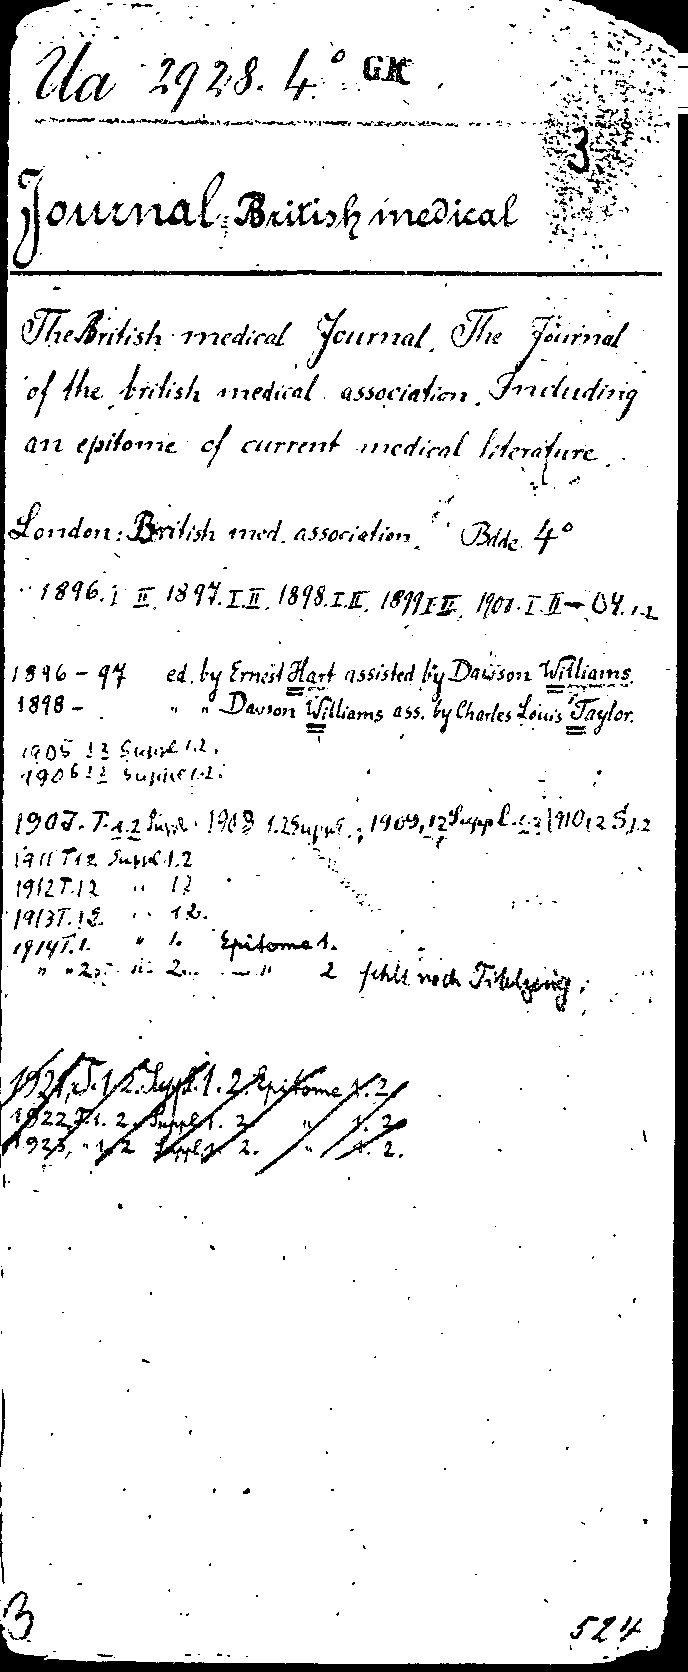 Ua 2928. 4° GK
3
Journal, British medical
The British medical Journal. The Journal
of the british medical association. Including
an epitome of current medical literature.
London: British med. association. Bdde 4°
1896. I II, 1897. I. II, 1898. I. II, 1899 I II, 1900. I. II – 04. 1.2
1896 – 97 ed. by Ernest Hart assisted by Dawson Williams.
1898 – " " Dawson Williams ass. by Charles Louis Taylor.
1905 1 2 Suppl 1.2.
1906 1 2 Suppl 1.2.
1907. T. 1.2 Suppl. 1908 1.2 Suppl. ; 1909, 1 2 Suppl. 1.2 1910 1 2 S. 1.2
1911 T 1 2 Suppl 1.2
1912 T. 1 2 " 1 2
1913 T. 1 2. " 1 2.
1914 T. 1. " 1. Epitome 1.
" " 2. " 2. — " 2 fehlt noch
1921, T. 1. 2. Suppl. 1. 2. Epitome 1. 2.
1922 T. 1. 2. Suppl 1. 2. " 1. 2.
1923, " 1. 2 Suppl 1. 2. " 1. 2.
3
524